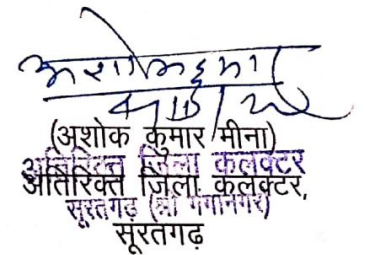 (अशोक कुमार मीना)
अतिरिक्त जिला कलक्टर
अतिरिक्त जिला कलक्टर,
सूरतगढ़ (श्री गंगानगर)
सूरतगढ़